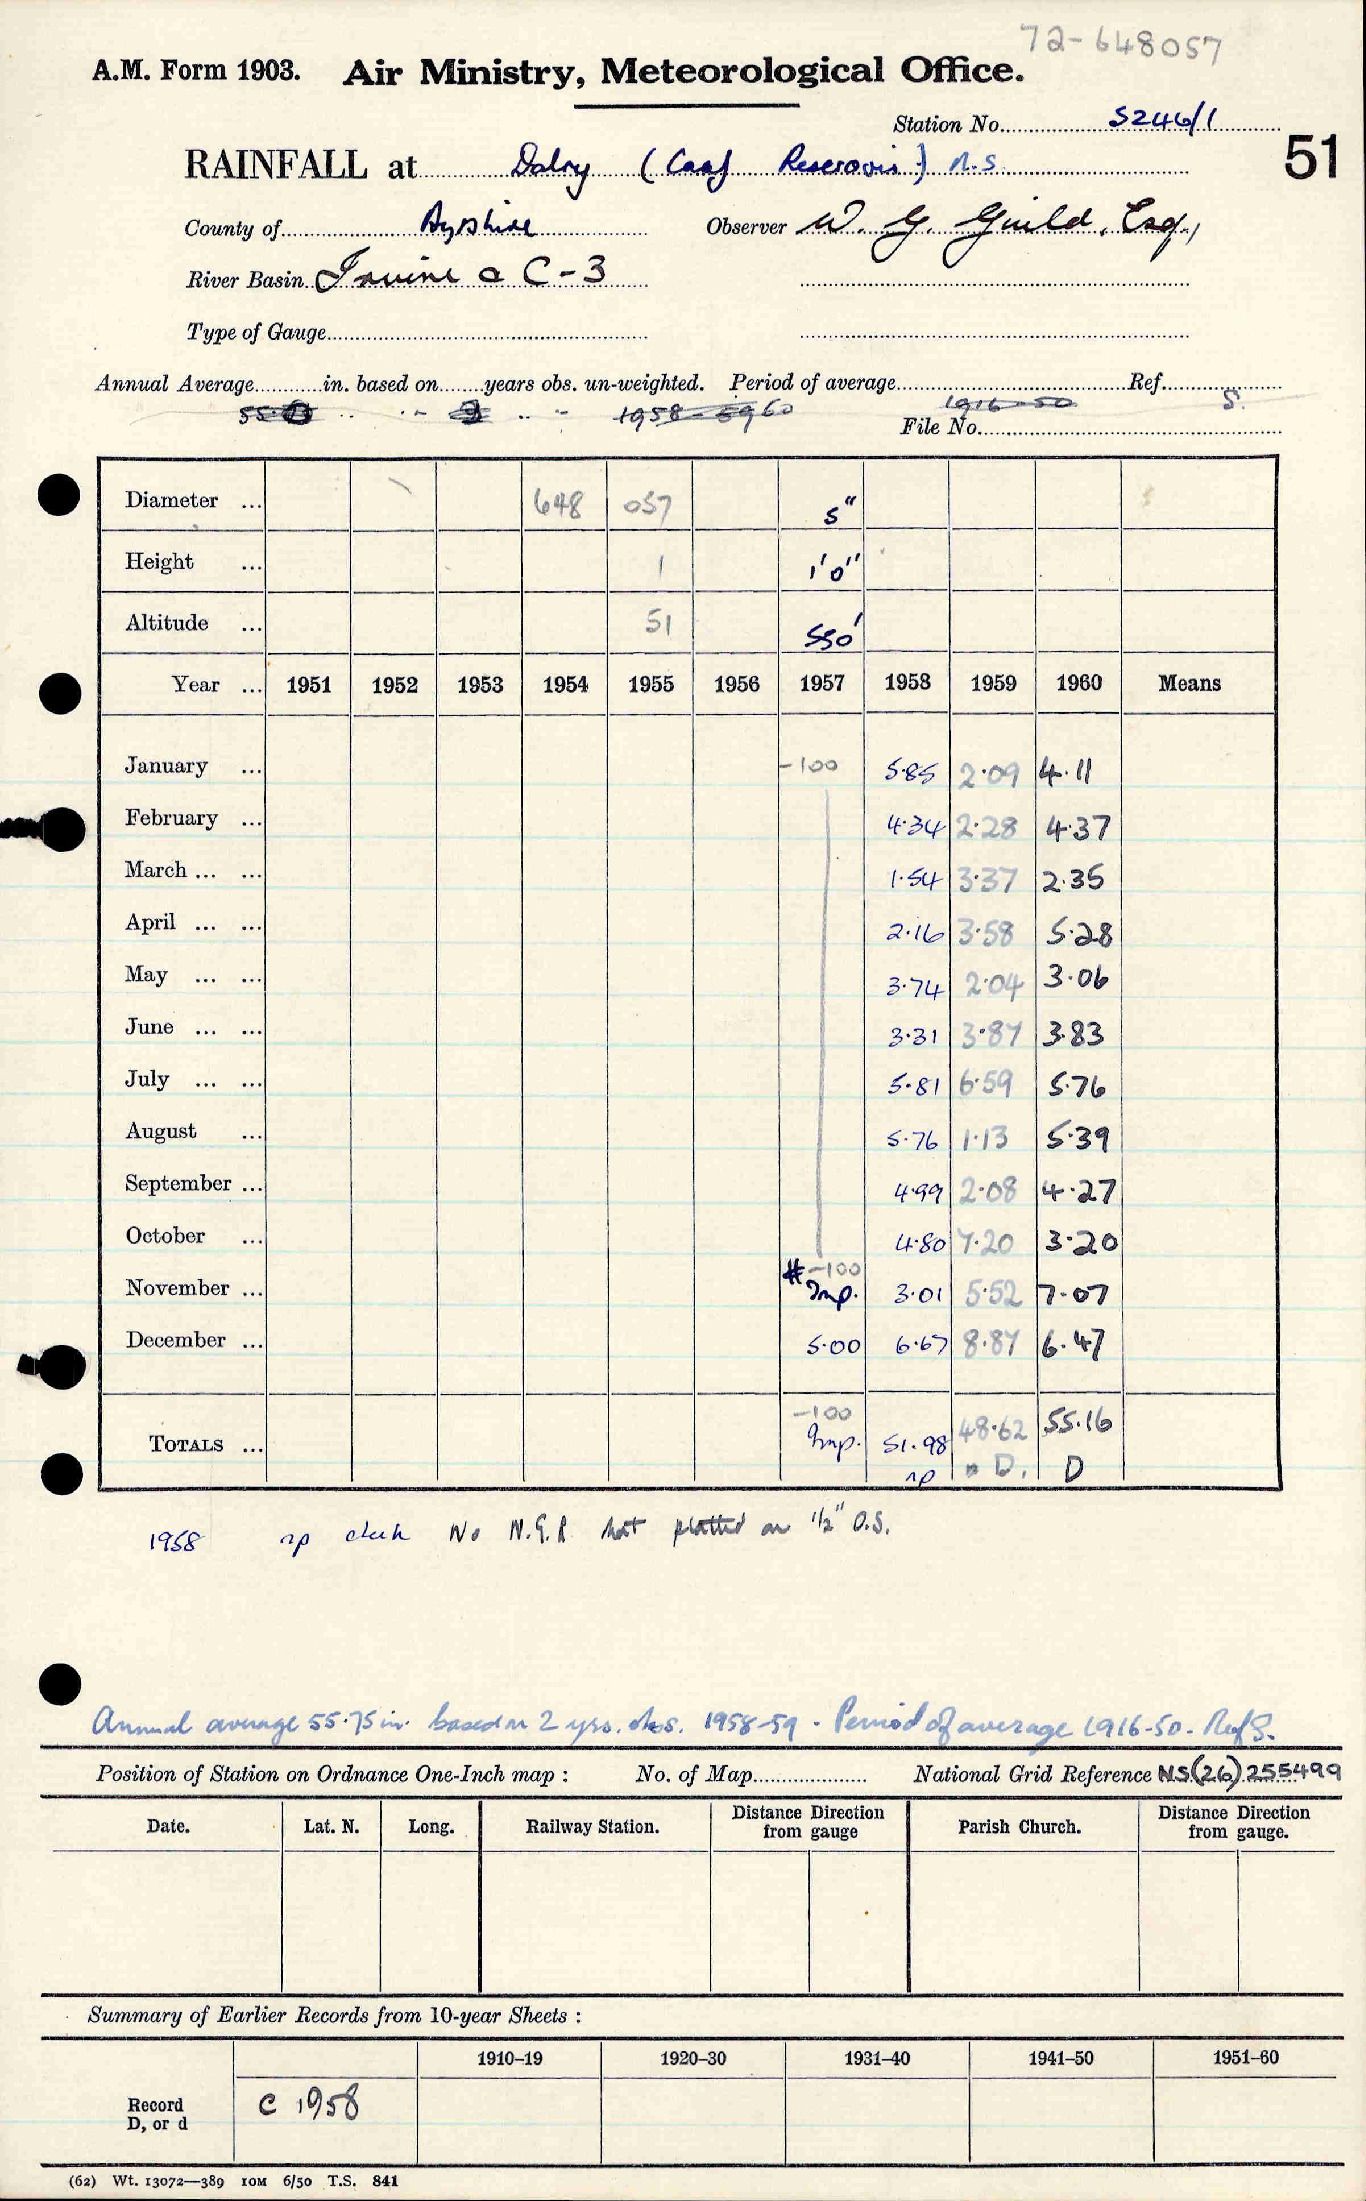 72-648057
A.M. Form 1903. Air Ministry, Meteorological Office.
Station No. 5246/1
51
RAINFALL at Dalry (Caaf Reservoir) N.S.
County of Ayrshire Observer W. G. Guild, Esq.,
River Basin Irvine a C-3
Type of Gauge
Annual Average in. based on years obs. un-weighted. Period of average Ref.
55.0 1958-5960 1916-50 S.
File No.
Diameter ... 648 057 5"
Height ... 1 1'0"
Altitude ... 51 550'
Year ... 1951 1952 1953 1954 1955 1956 1957 1958 1959 1960 Means
January ... -100 5.85 2.09 4.11
February ... 4.34 2.28 4.37
March ... ... 1.54 3.37 2.35
April ... ... 2.16 3.58 5.28
May ... ... 3.74 2.04 3.06
June ... ... 3.31 3.87 3.83
July ... ... 5.81 6.59 5.76
August ... 5.76 1.13 5.39
September ... 4.99 2.08 4.27
October ... 4.80 7.20 3.20
# -100
November ... Imp. 3.01 5.52 7.07
December ... 5.00 6.67 8.87 6.47
-100
TOTALS ... Imp. 51.98 48.62 55.16
np D. D
1958 np check No N.G.R. not plotted on 1/2" O.S.
Annual average 55.75 in. based on 2 yrs. obs. 1958-59. Period of average 1916-50. Ref S.
Position of Station on Ordnance One-Inch map : No. of Map National Grid Reference NS(26)255499
Date. Lat. N. Long. Railway Station. Distance from gauge Direction Parish Church. Distance from gauge. Direction
Summary of Earlier Records from 10-year Sheets :
1910–19 1920–30 1931–40 1941–50 1951–60
Record D, or d C 1958
(62) Wt. 13072—389 10M 6/50 T.S. 841